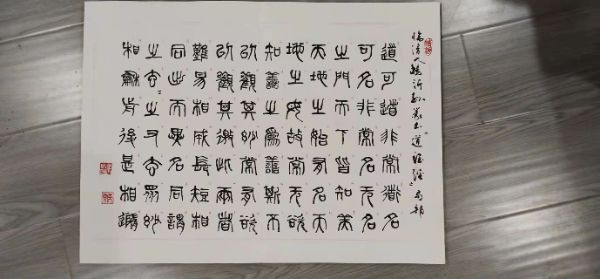 臨清人楊沂孫篆書道德經局部
道可道非常道名
可名非常名无名
之門天下皆知美
天地之始有名天
地之母故常无欲
知善之為善斯不
以觀其妙常有欲
以觀其徼此兩者
難易相成長短相
同出而異名同謂
之玄之又玄眾妙
相龢前後是相隨